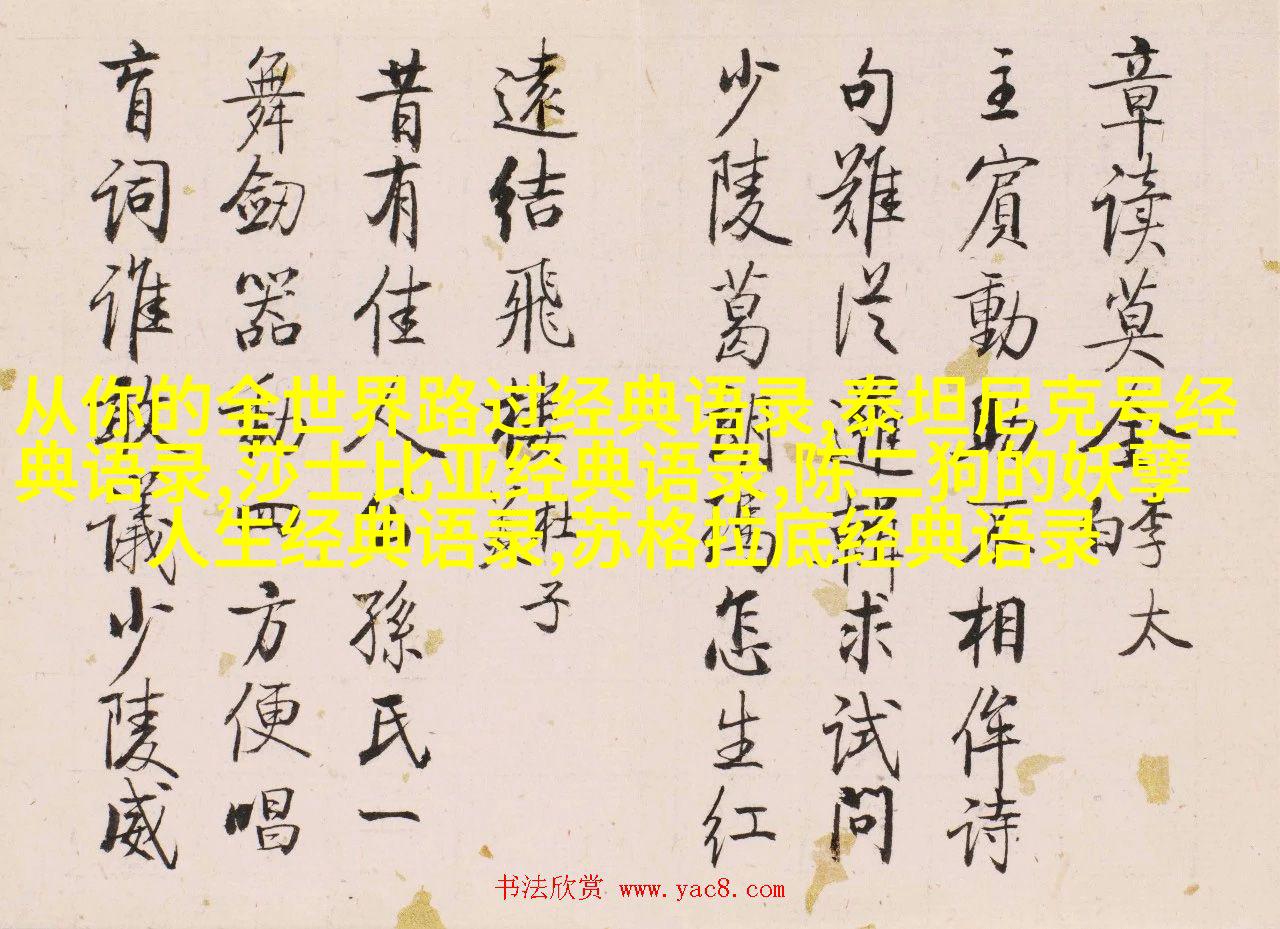 章读莫全李太白
主賓動助不相侔诗
句難従邏輯求试問
少陵葛朗瑪怎生红
遠结飛樓杜子美
昔有佳人公孫氏一
舞劒器動四方便唱
盲词谁敢議少陵威
从你的全世界路过经典语录,泰坦尼克号经
典语录,莎士比亚经典语录,陈二狗的妖孽
人生经典语录,苏格拉底经典语录
书法欣赏 www.yac8.com